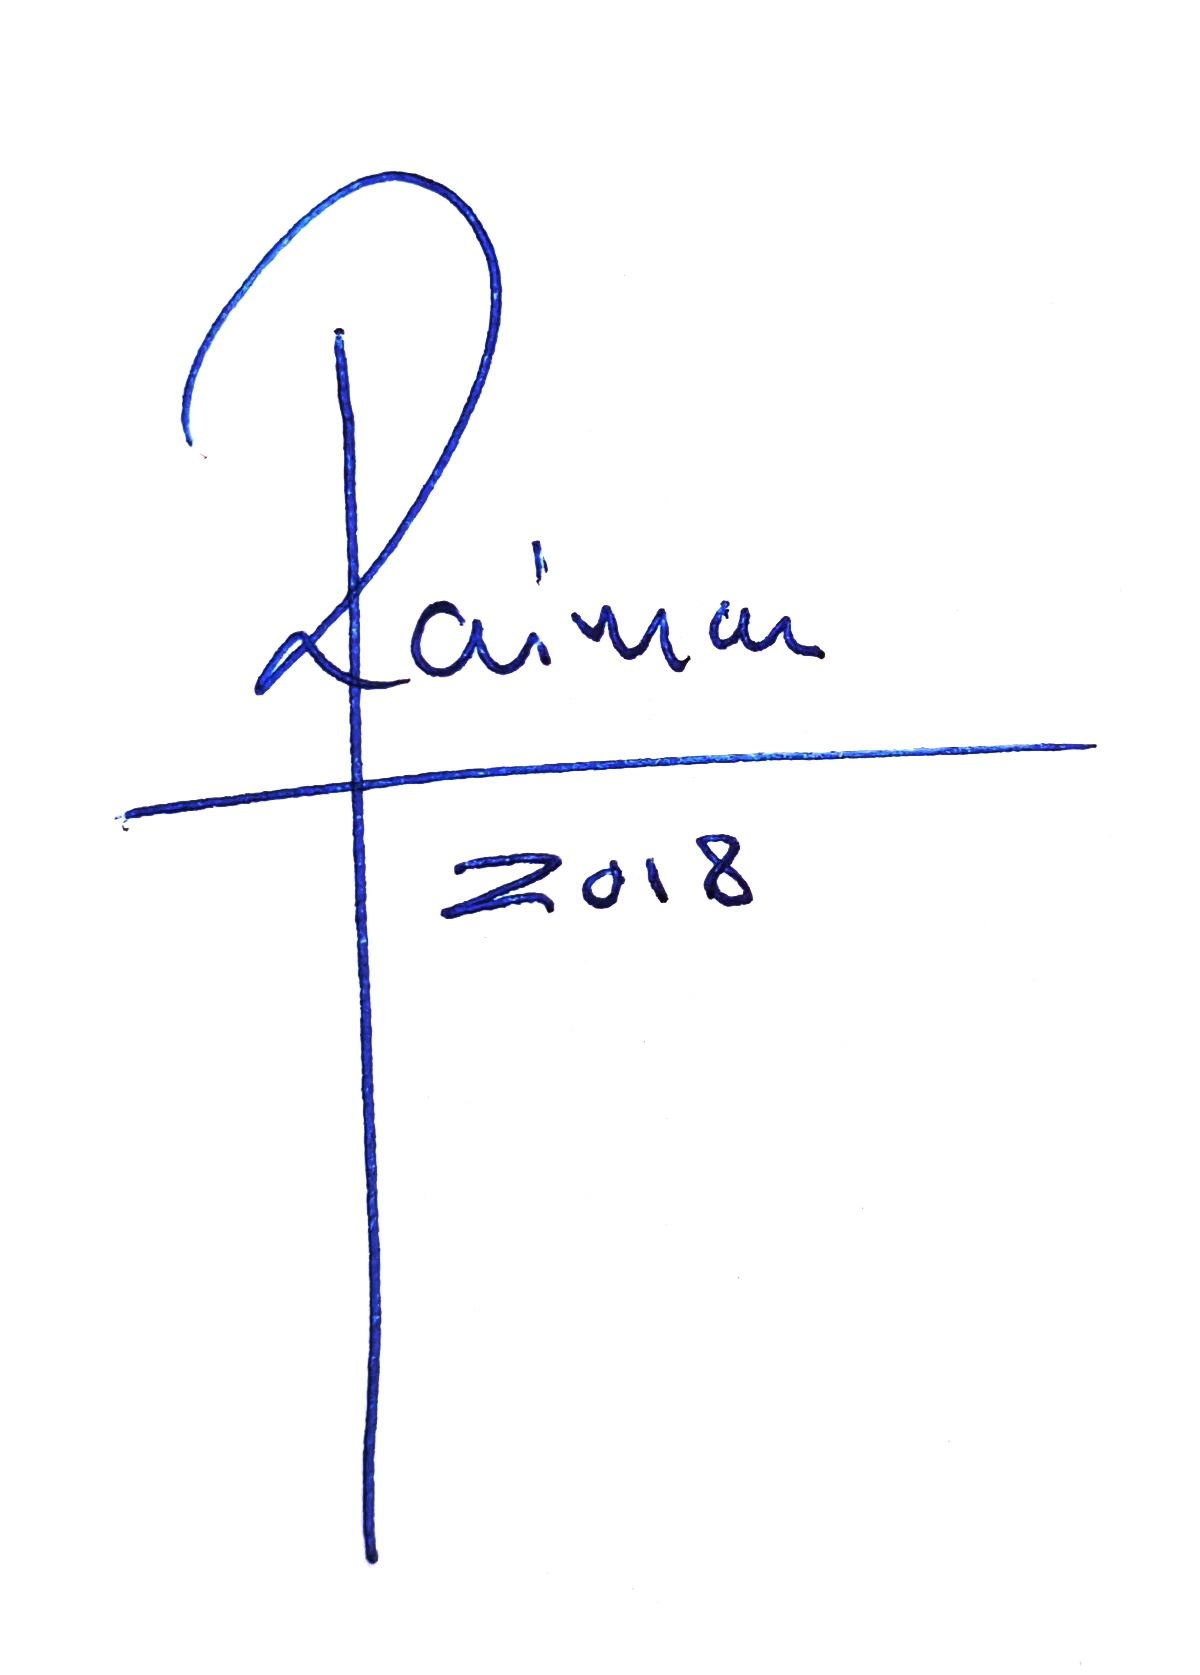 Raiman
2018